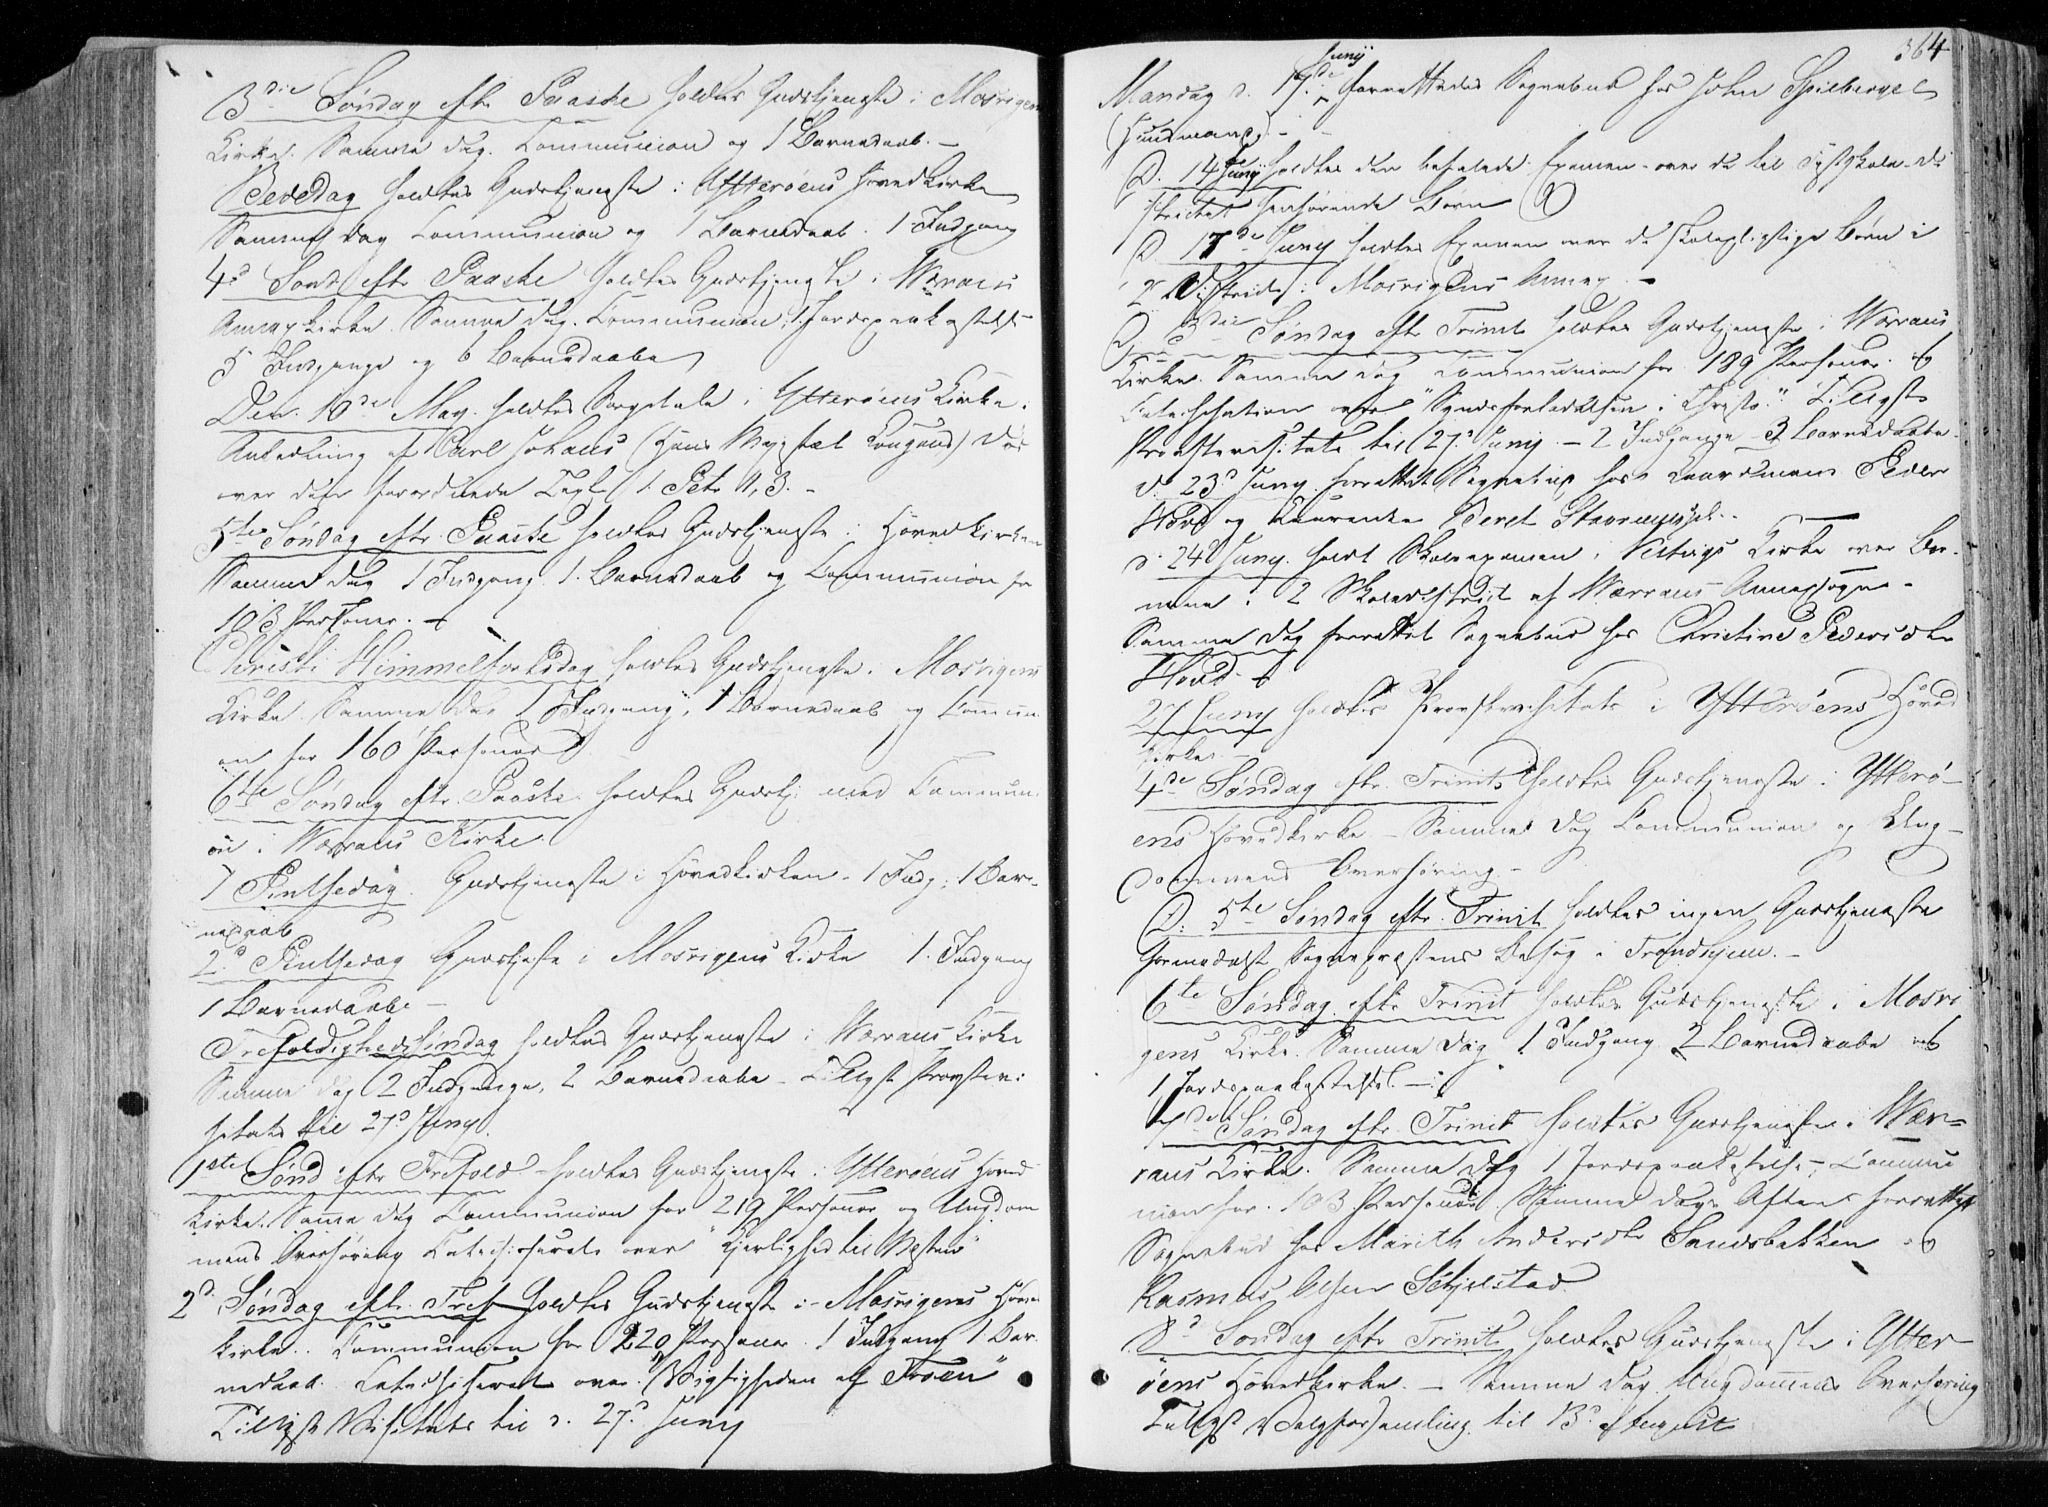 3die Søndag eftr Paaske holdtes Gudstjeneste i Mosvigens
Kirke. Samme Dag Communion og 1 Barnedaab. —
Bededag holdtes Gudstjeneste i Ytterøens Hovedkirke
Samme Dag Communion og 1 Barnedaab. 1 Indgang
4d Sond eftr Paaske holdtes Gudstjeneste i Værrans
Annex Kirke. Samme Dag Communion, 1 Jordspaakastelse
5 Indgange og 6 Barnedaabe
Den 10de May holdtes Sørgetale i Ytterøens Kirke i
Anledning af Carl Johans (Hans Majestæt Kongens) Død
over den forordnede Text 1 Petr 1,3. —
5te Søndag eftr Paaske holdtes Gudstjeneste i Hovedkirken
Samme Dag 1 Indgang 1 Barnedaab og Communion for
103 Personer. —
Christi Himmelfartsdag holdtes Gudstjeneste i Mosvigens
Kirke Samme Dag 1 Indgang, 1 Barnedaab og Commun
on for 160 Personer
6te Søndag eftr Paaske holdtes Gudstj: med Commun
on i Værrans Kirke.
1 Pintsedag Gudstjeneste i Hovedkirken. 1 Indg: 1 Bar-
nedaab
2d Pintsedag Gudstjeste i Mosvigens Kirke 1. Indgang
1 Barnedaabe —
Trefoldighedssøndag holdtes Gudstjeneste i Værrans Kirke
Samme Dag 2 Indgange, 2 Barnedaabe — Tillyst Provstevi:
sitats til 27d Juny.
1ste Sønd eftr Trefold holdtes Gudstjeneste i Ytterøens Hoved
Kirke. Samme Dag Communion for 219 Personer og Ungdom
mens Overhøring Catechiserede over "Kjerlighed til Næsten"
2d Søndag eftr. Tref holdtes Gudstjeneste i Mosvigens Hoved
kirke. Communion for 220 Personer. 1 Indgang 1 Bar
nedaab. Catechiseret over "Vigtigheden af Troen"
Tillyst Visitats til d. 27d Juny
364
Juny
Mandag d. 17de forrettedes Sognebud hos John Spilberget
(Huusmand) —
D. 14de Juny holdtes den befalede Examen over de til Systskole-Di
strictet henhørende Børn
D. 17de Juny holdtes Examen over de skolepligtige Børn i
2 Districter i Mosvigens Annex —
D. 3die Søndag eftr Trinit holdtes Gudstjeneste i Værrans
Kirke. Samme Dag Communion for 189 Personer og
Catechisation over "Syndsforladelsen i Christo." Tillyst
Provstevisitats til 27d Juny. — 2 Indgange 3 Barnedaabe
d. 23d Juny forrettet Sognebud hos Peder
Hovd og Beret
d. 24d Juny holdt Skoleexamen i Kirke over Bør-
nene i 2 Skoledistrict af Værrans Annexsogne —
Samme Dag forrettet Sognebud hos Christine Pedersdtr
Hovd —
27 Juny holdtes Provstevisitats i Ytterøens Hoved
kirke —
4de Søndag eftr. Trinits holdtes Gudstjeneste i Ytterø-
ens Hovedkirke — Samme Dag Communion og Ung-
dommens Overhøring —
D: 5te Søndag eftr Trinit holdtes ingen Gudstjeneste
formedelst Sognepræstens Besøg i Trondhjem. —
6te Søndag eftr Trinit holdtes Gudstjeneste i Mosvi
gens Kirke. Samme Dag 1 Indgang 2 Barnedaabe og
1 Jordspaakastelse. —
7de Søndag eftr Trinit holdtes Gudstjeneste i Vær-
rans Kirke. Samme Dag 1 Jordspaakastelse, Commu
nion for 103 Personer Samme Dags Aften forrettet
Sognebud hos Marith Andersdtr Sandsbakken og
Rasmus Olsen Schjelstad.
8d Søndag eftr Trinit holdtes Gudstjeneste i Ytter
øens Hovedkirke. — Samme Dag Ungdommens Overhøring
Tillyst Valgforsamling til 13d August